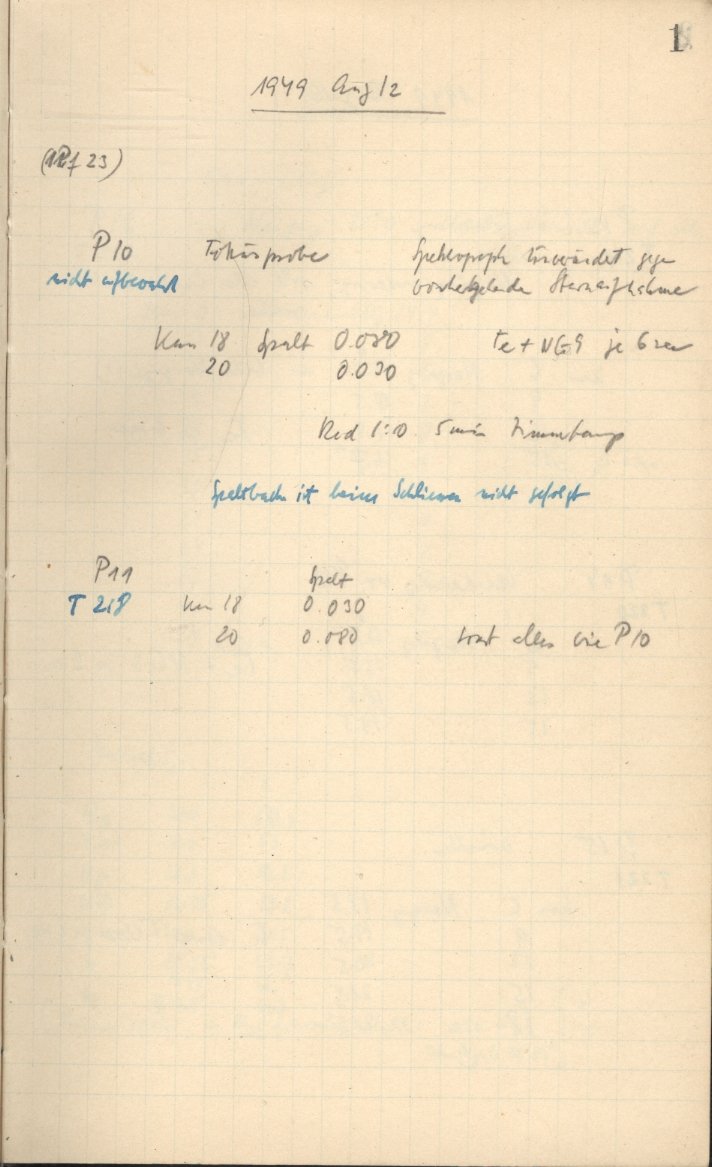 1
1949 Aug 12
P10 Fokusprobe Spektrograph unverändert gegen
nicht aufbewahrt vorhergehende Sternaufnahme
Kam 18 Spalt 0.080 Fe + NG9 je 6 sec
20 0.030
Rod 1:10 5 min Zimmertemp
Spaltbacke ist beim Schliessen nicht gefolgt
P11 Spalt
T 218 Kam 18 0.030
20 0.080 sonst alles wie P10